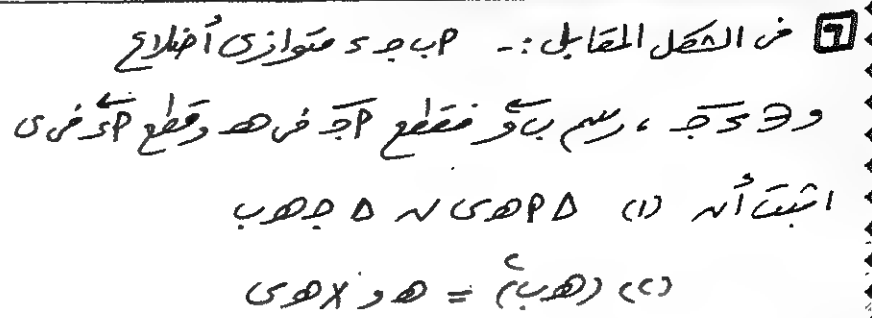 ٦ فى الشكل المقابل :- أ ب ج د متوازى أضلاع
و ∈ د ج ، رسم ب و فقطع أ ج فى هـ وقطع أ د فى ى
اثبت أن (١) Δ أ هـ ى ~ Δ ج هـ ب
(٢) (هـ ب)² = هـ و × هـ ى